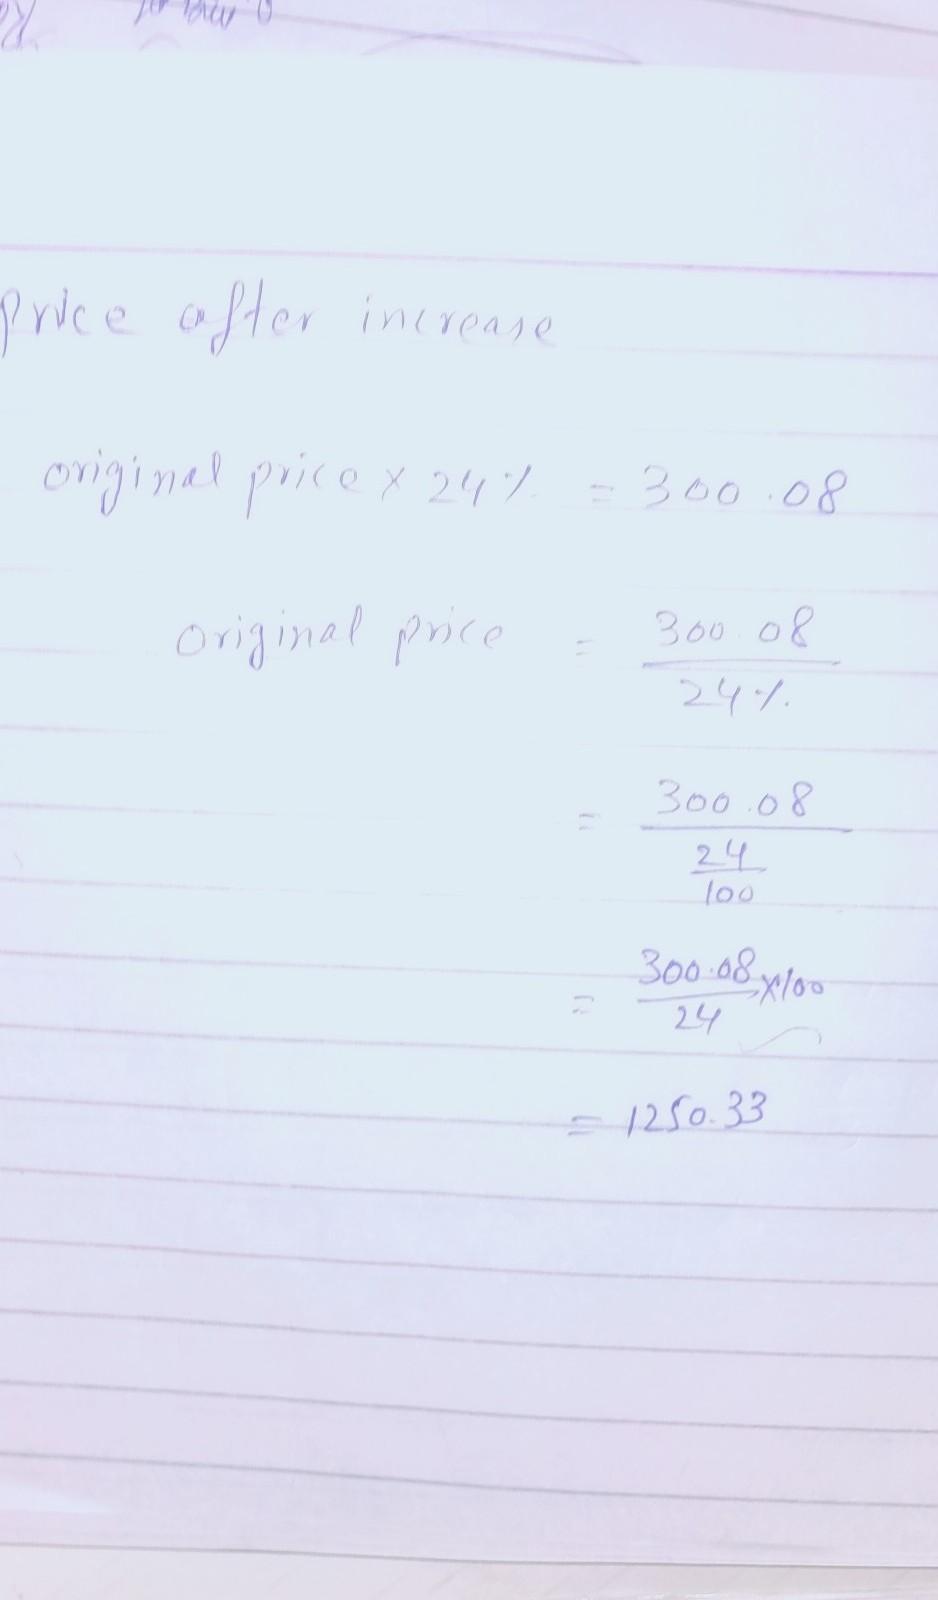 price after increase
original price x 24% = 300.08
original price = 300.08
24%
= 300.08
24
100
= 300.08 x100
24
= 1250.33